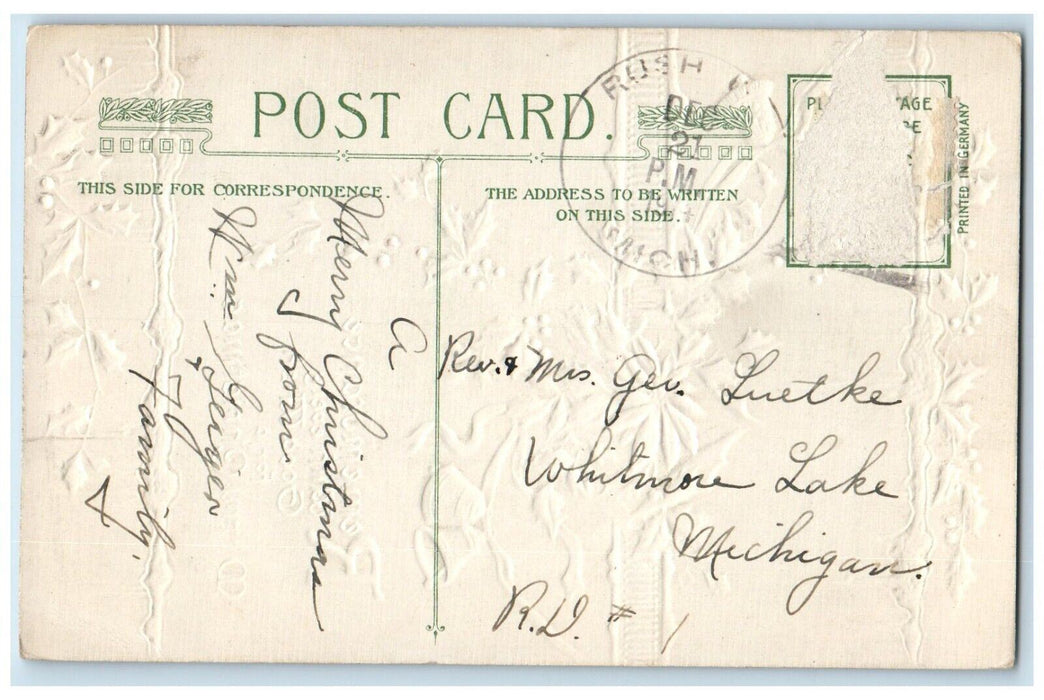 POST CARD.
THIS SIDE FOR CORRESPONDENCE.
THE ADDRESS TO BE WRITTEN
ON THIS SIDE.
RUSH
DEC
21
P.M.
MICH.
AGE
PRINTED IN GERMANY
A
Merry Christmas
from
Wm. Geiger
+ Family.
Rev. & Mrs. Geo. Luetke
Whitmore Lake
Michigan.
R.D. # 1